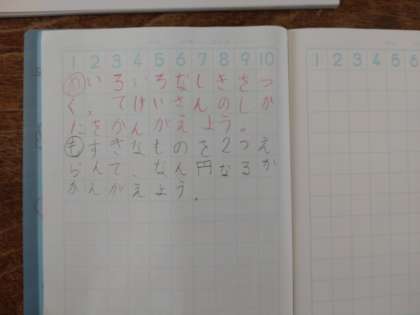 1 2 3 4 5 6 7 8 9 10
1 2 3 4 5 6
め いろいろなしきをつ
くって けいさんのしか
たをかんがえよう。
も すきなものを2つえ
らんで、なん円なるか
かんがえよう。